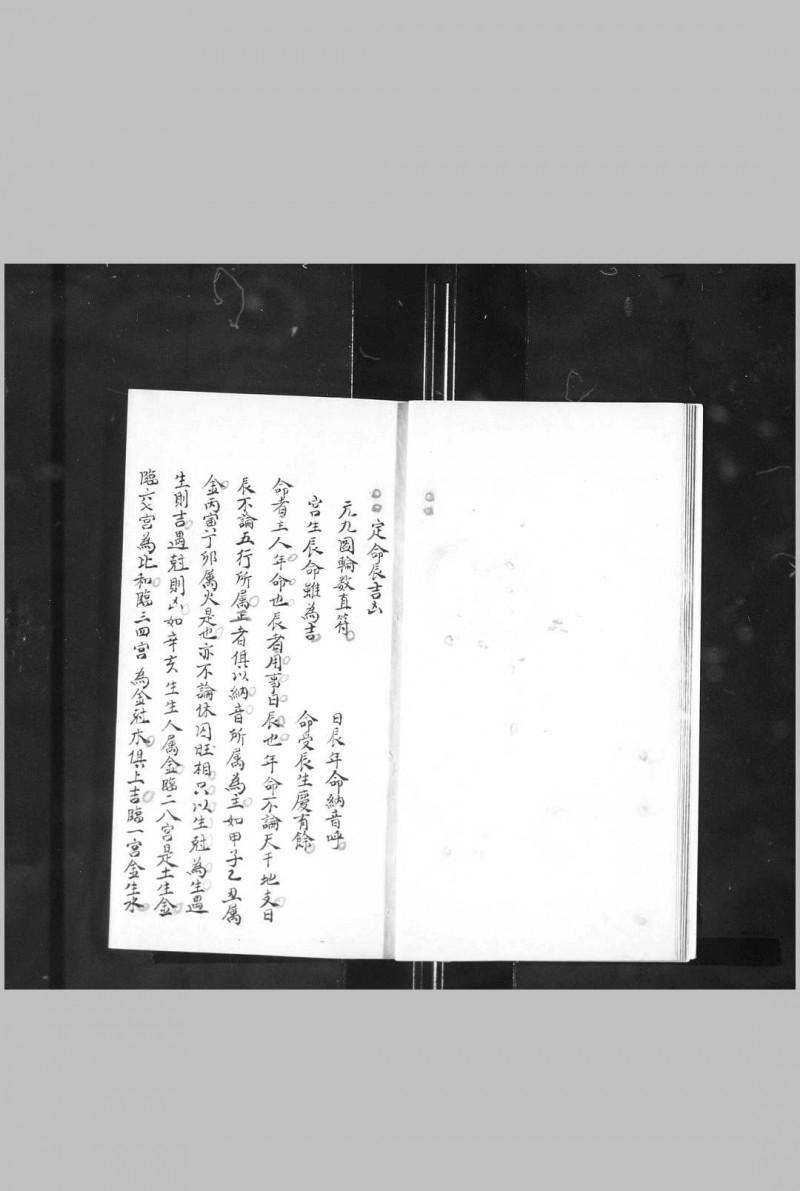 定命辰吉凶
元九圖輪數直符 日辰年命納音呼
宮生辰命雖為吉 命受辰生慶有餘
命者主人年命也辰者用事日辰也年命不論天干地支日
辰不論五行所属正者俱以納音所属為主如甲子乙丑属
金丙寅丁卯属火是也亦不論休囚旺相只以生尅為生遇
生則吉遇尅則凶如辛亥生生人属金臨二八宮是土生金
臨六七宮為比和臨三四宮為金尅木俱上吉臨一宮金生水